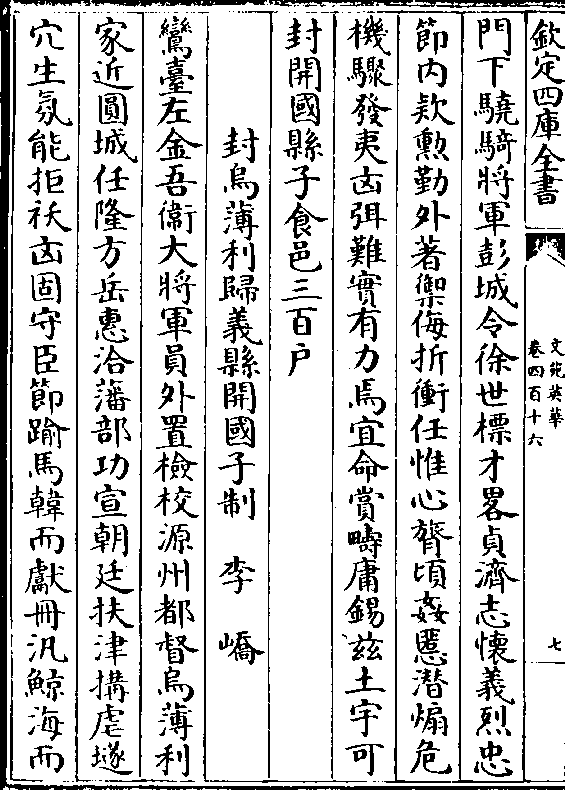 欽定四庫全書
文苑英華
卷四百十六
七
門下驍騎將軍彭城令徐世標才畧貞濟志懷義烈忠
節内欵勲勤外著禦侮折衝任惟心膂頃姦慝潜煽危
機驟發夷凶弭難實有力焉宜命賞疇庸錫兹土宇可
封開國縣子食邑三百户
封烏薄利歸義縣開國子制 李嶠
鸞臺左金吾衛大將軍員外置檢校源州都督烏薄利
家近圓城任隆方岳惠洽藩部功宣朝廷扶津搆虐㙜
穴生氛能拒祅凶固守臣節踰馬韓而獻冊汎鯨海而